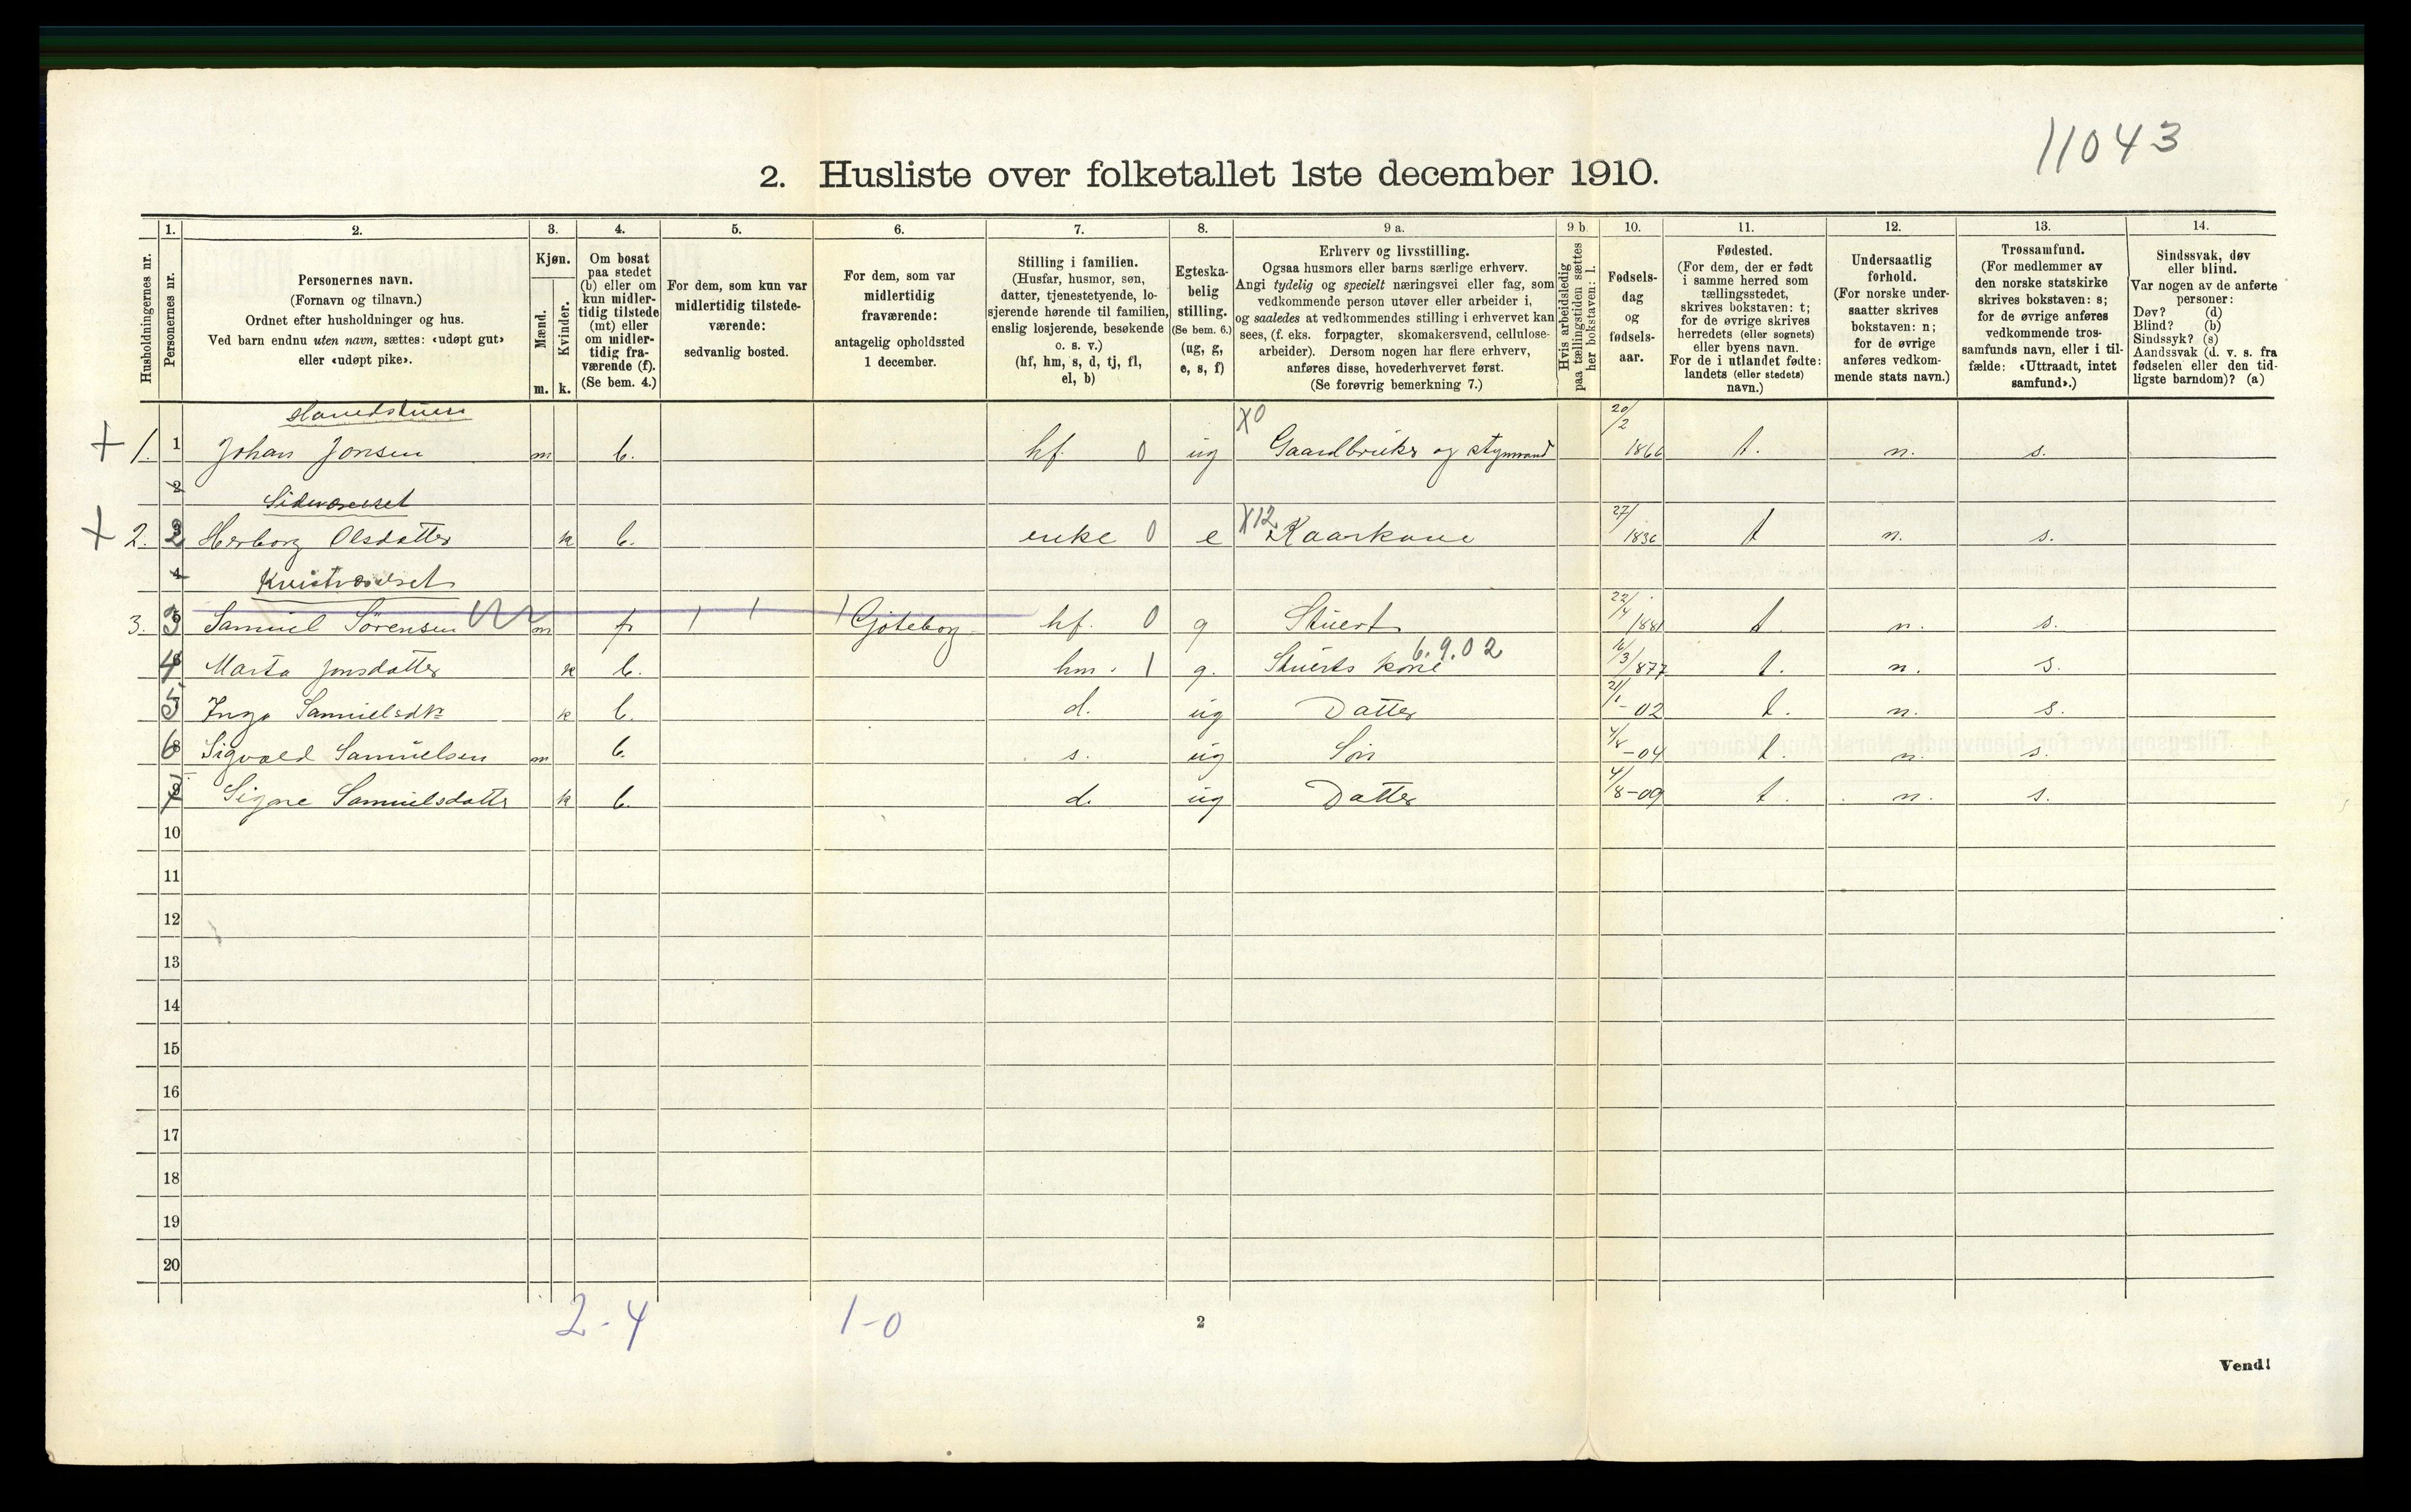 11043
2. Husliste over folketallet 1ste december 1910.
Husholdningernes nr.
1.
Personernes nr.
2.
Personernes navn.
(Fornavn og tilnavn.)
Ordnet efter husholdninger og hus.
Ved barn endnu uten navn, sættes: «udøpt gut»
eller «udøpt pike».
3.
Kjøn.
Mænd.
Kvinder.
m. k.
4.
Om bosat
paa stedet
(b) eller om
kun midler-
tidig tilstede
(mt) eller
om midler-
tidig fra-
værende (f).
(Se bem. 4.)
5.
For dem, som kun var
midlertidig tilstede-
værende:
sedvanlig bosted.
6.
For dem, som var
midlertidig
fraværende:
antagelig opholdssted
1 december.
7.
Stilling i familien.
(Husfar, husmor, søn,
datter, tjenestetyende, lo-
sjerende hørende til familien,
enslig losjerende, besøkende
o. s. v.)
(hf, hm, s, d, tj, fl,
el, b)
8.
Egteska-
belig
stilling.
(Se bem. 6.)
(ug, g,
e, s, f)
9 a.
Erhverv og livsstilling.
Ogsaa husmors eller barns særlige erhverv.
Angi tydelig og specielt næringsvei eller fag, som
vedkommende person utøver eller arbeider i,
og saaledes at vedkommendes stilling i erhvervet kan
sees, (f. eks. forpagter, skomakersvend, cellulose-
arbeider). Dersom nogen har flere erhverv,
anføres disse, hovederhvervet først.
(Se forøvrig bemerkning 7.)
9 b.
Hvis arbeidsledig
paa tællingstiden sættes
her bokstaven: l.
10.
Fødsels-
dag
og
fødsels-
aar.
11.
Fødested.
(For dem, der er født
i samme herred som
tællingsstedet,
skrives bokstaven: t;
for de øvrige skrives
herredets (eller sognets)
eller byens navn.
For de i utlandet fødte:
landets (eller stedets)
navn.)
12.
Undersaatlig
forhold.
(For norske under-
saatter skrives
bokstaven: n;
for de øvrige
anføres vedkom-
mende stats navn.)
13.
Trossamfund.
(For medlemmer av
den norske statskirke
skrives bokstaven: s;
for de øvrige anføres
vedkommende tros-
samfunds navn, eller i til-
fælde: «Uttraadt, intet
samfund».)
14.
Sindssvak, døv
eller blind.
Var nogen av de anførte
personer:
Døv? (d)
Blind? (b)
Sindssyk? (s)
Aandssvak (d. v. s. fra
fødselen eller den tid-
ligste barndom)? (a)
+ 1. 1 Johan Jonsen m b. hf. 0 ug X0 Gaardbruker og styrmand 20/2 1866 t. n. s.
2
Sideværelset
+ 2. 2 Herborg Olsdatter k b. enke 0 e X12 Kaarkone 27/ 1836 t n. s.
4 Kvistværelset
3. 3 Samuel Sörensen m f Göteborg hf. 0 g Stuert 22/4 1881 t. n. s.
4 Marta Jonsdatter k b. hm. 1 g. Stuerts kone 6.9.02 16/3 1877 t. n. s.
5 Inga Samuelsdtr k b. d. ug Datter 21/1 - 02 t. n. s.
6 Sigvald Samuelsen m b. s. ug Sön - 04 t. n. s.
7 Signe Samuelsdatter k b. d. ug Datter 4/8-09 t. n. s.
10
11
12
13
14
15
16
17
18
19
20
2-4 1-0
2
Vend!